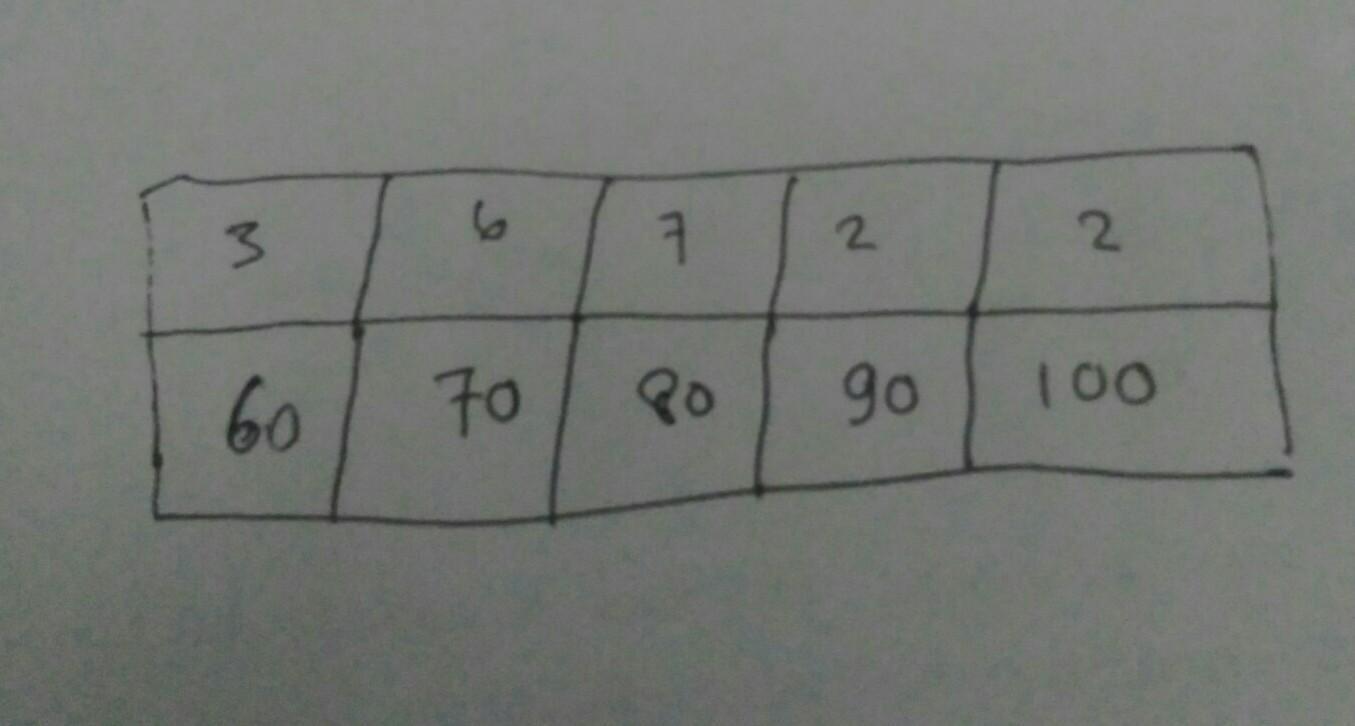 3 6 7 2 2
60 70 80 90 100